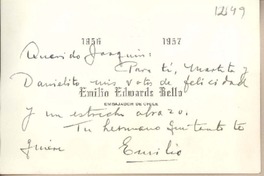 1249
1956 1957
Querido Joaquin:
Para ti, Martita y
Danielito mis votos de felicidad
Emilio Edwards Bello
EMBAJADOR DE CHILE
y un estrecho abrazo.
Tu hermano que tanto te
quiere
Emilio